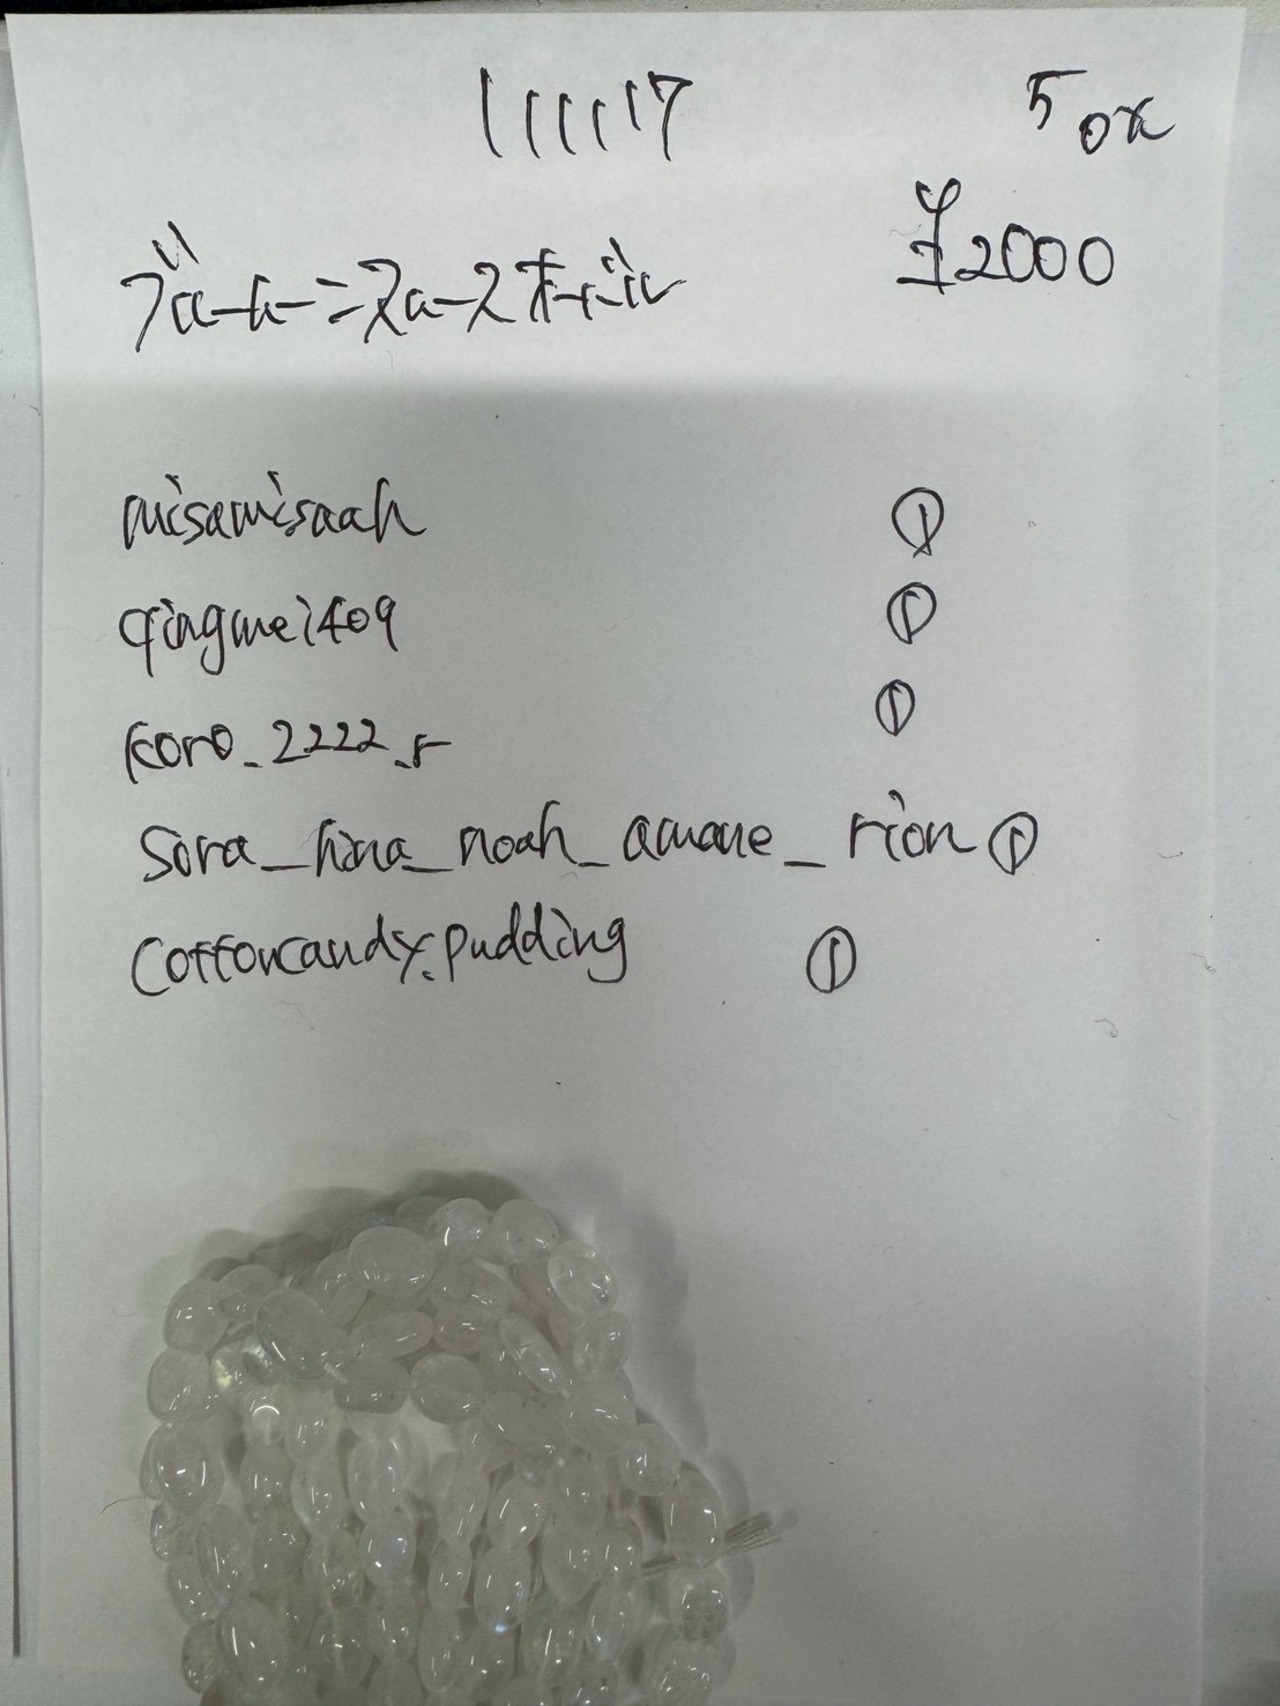 111117
50x
¥2000
ブルームーンストーン
misamisaah
①
qingmei409
①
koro_2222_r
①
Sora_hina_noah_amane_rion ①
Cottoncandy.pudding ①